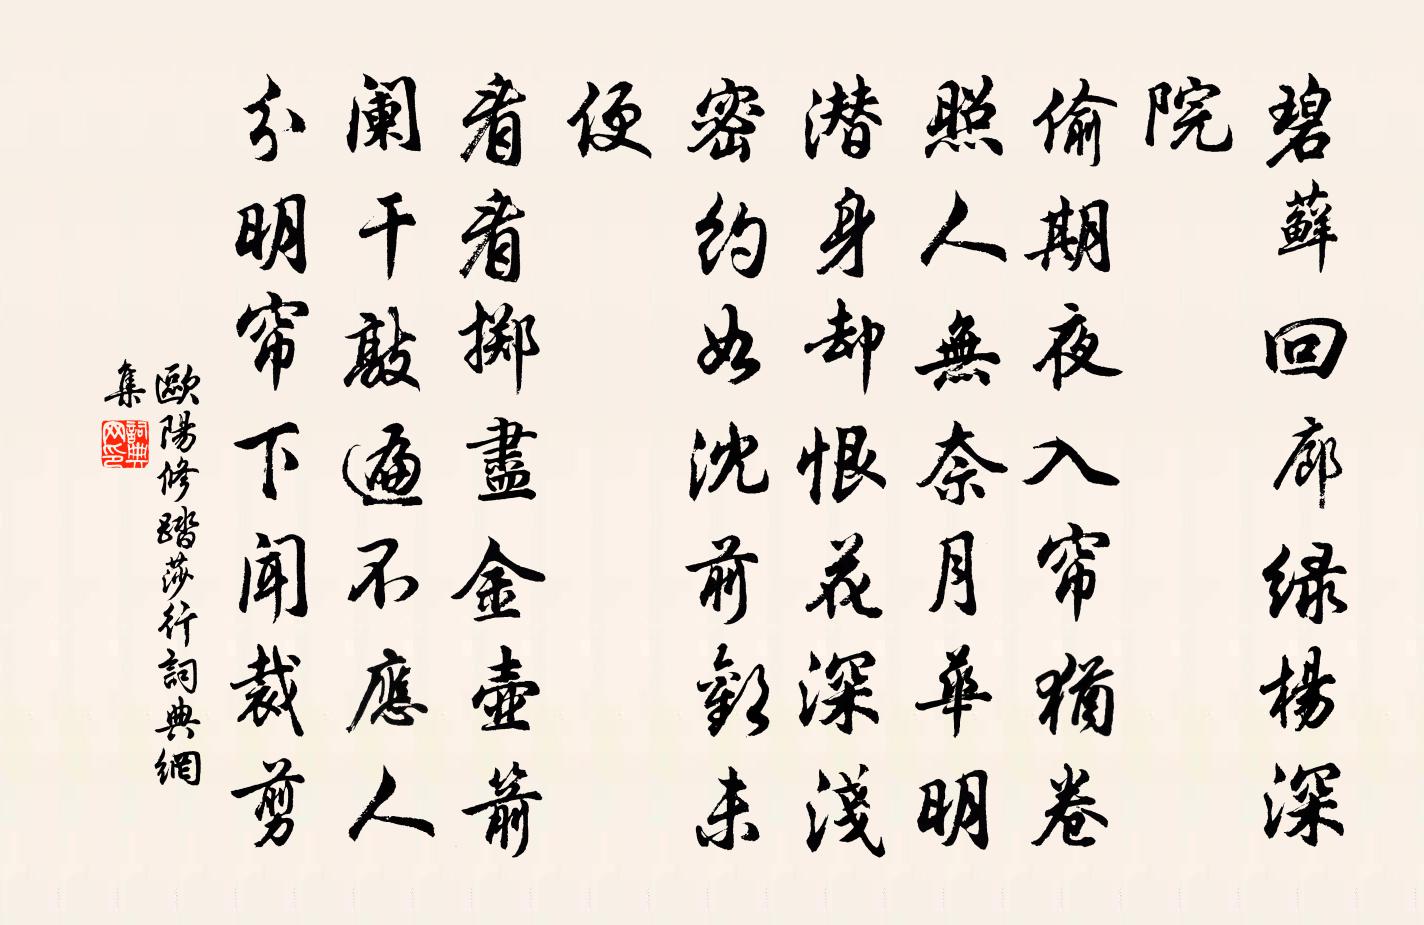 碧蘚回廊绿楊深
院
偷期夜入帘猶卷
照人無奈月華明
潜身却恨花深淺
密約如沈前歡未
便
看看擲盡金壺箭
阑干敲遍不應人
分明帘下聞裁剪
歐陽修踏莎行詞典網
集
詞典
网印